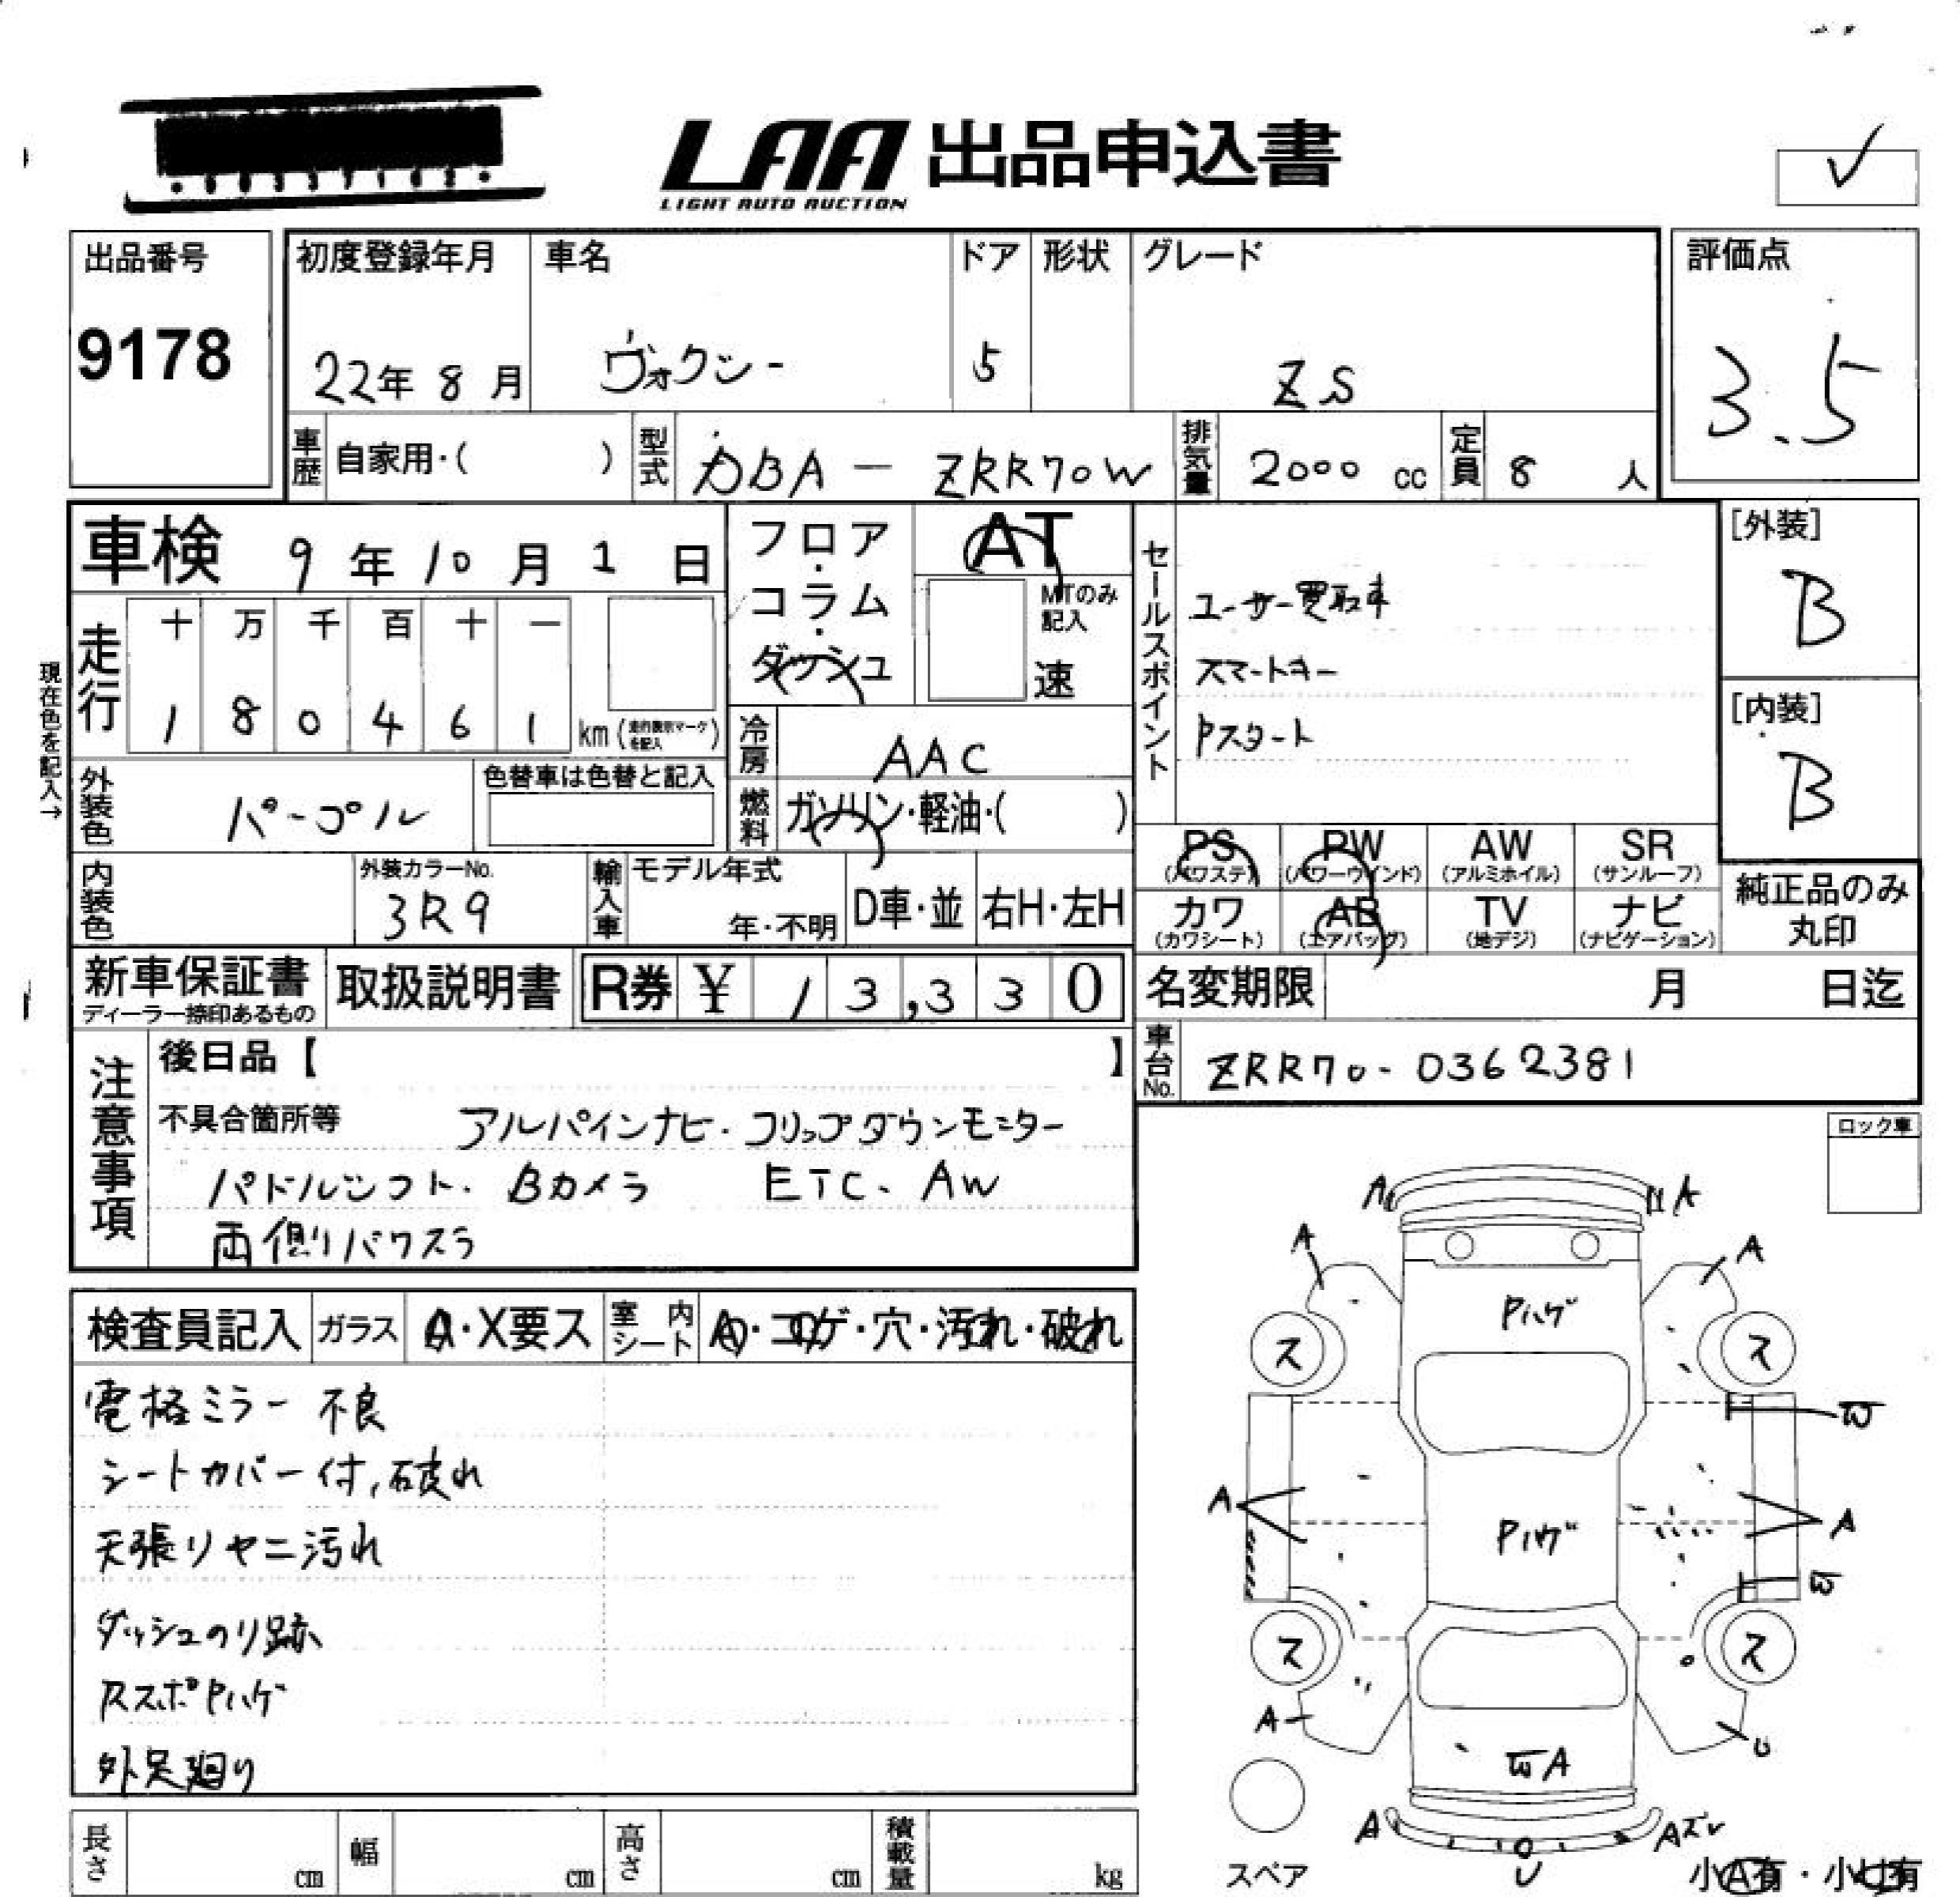 LAA 出品申込書
LIGHT AUTO AUCTION
✓
出品番号
9178
初度登録年月
22年 8月
車名
ヴォクシー
ドア
5
形状
グレード
ZS
評価点
3.5
車歴 自家用・( )
型式 DBA － ZRR70W
排気量 2000 cc
定員 8 人
車検 9年 10月 1日
フロア・コラム・ダッシュ
AT
MTのみ記入
速
セールスポイント
ユーザー買取車
スマートキー
Pスタート
[外装]
B
[内装]
B
現在色を記入→
走行
十 万 千 百 十 一
1 8 0 4 6 1 km
冷房 AAC
燃料 ガソリン・軽油・( )
外装色 パープル
色替車は色替と記入
内装色
外装カラーNo.
3R9
輸入車
モデル年式
年・不明
D車・並
右H・左H
PS (パワステ)
PW (パワーウインド)
AW (アルミホイル)
SR (サンルーフ)
カワ (カワシート)
AB (エアバッグ)
TV (地デジ)
ナビ (ナビゲーション)
純正品のみ丸印
新車保証書
ディーラー捺印あるもの
取扱説明書
R券 ¥ 13,330
名変期限 月 日迄
車台No. ZRR70-0362381
注意事項
後日品【 】
不具合箇所等 アルパインナビ・フリップダウンモニター
パドルシフト、Bカメラ ETC、AW
両側パワスラ
ロック車
検査員記入
ガラス A・X要ス
室内シート A・コゲ・穴・汚れ・破れ
電格ミラー不良
シートカバー付,破れ
天張りヤニ汚れ
ダッシュのり跡
RスポPハゲ
外足廻り
A
A
A
A
Pハゲ
ス
ス
W
A
A
Pハゲ
W
ス
ス
A
U
WA
A
U
Aズレ
スペア
小A有・小U有
長さ cm
幅 cm
高さ cm
積載量 kg